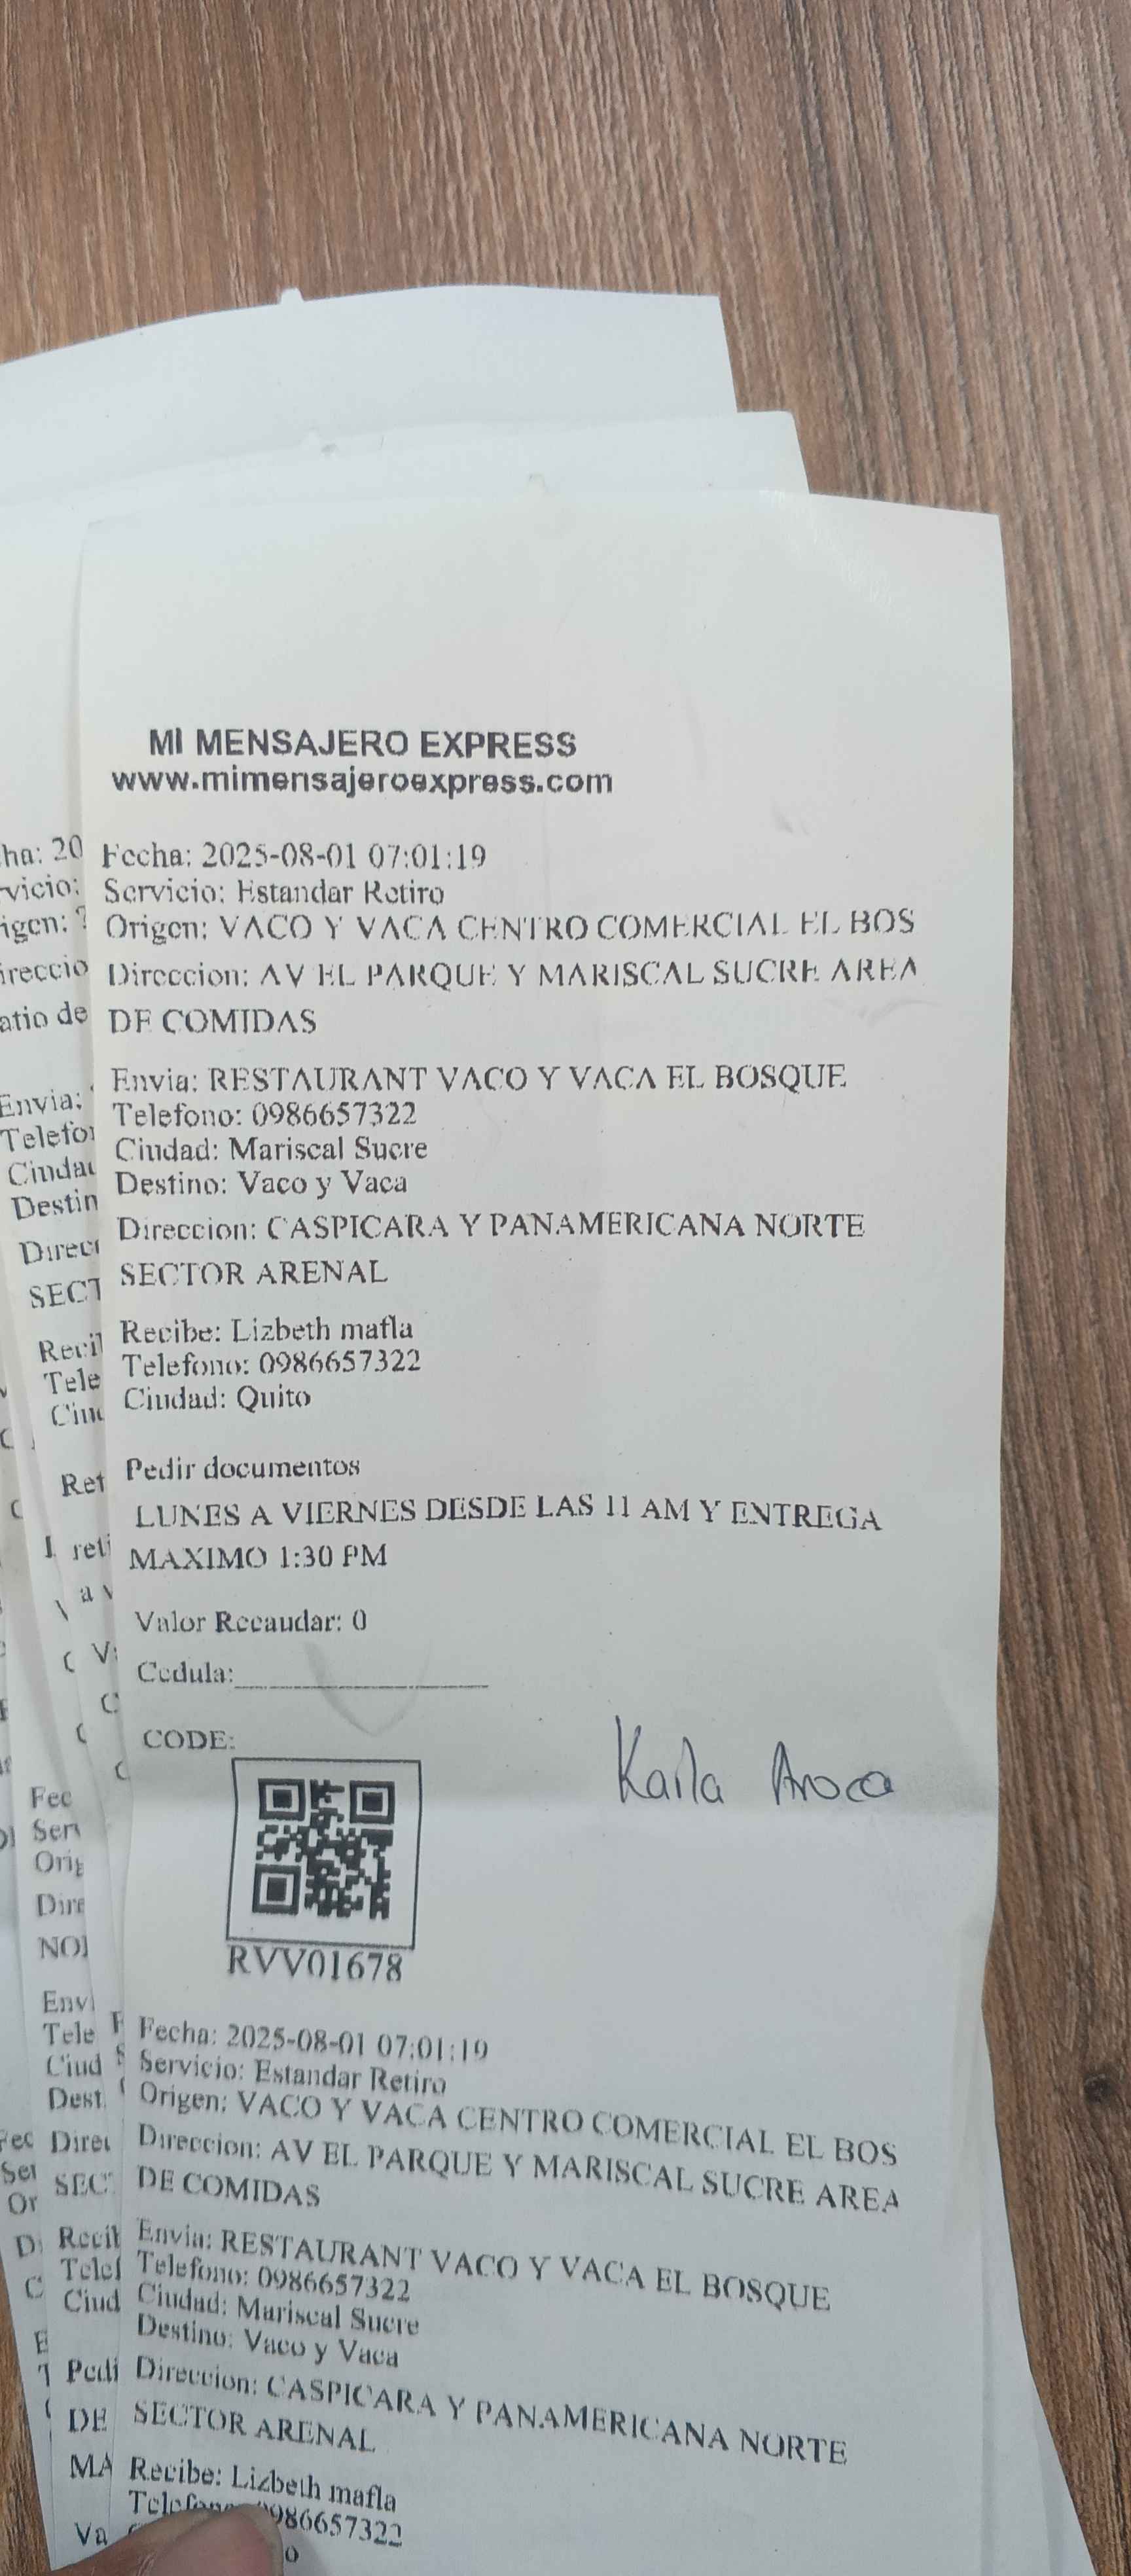 MI MENSAJERO EXPRESS
www.mimensajeroexpress.com
Fecha: 2025-08-01 07:01:19
Servicio: Estandar Retiro
Origen: VACO Y VACA CENTRO COMERCIAL EL BOS
Direccion: AV EL PARQUE Y MARISCAL SUCRE AREA
DE COMIDAS
Envia: RESTAURANT VACO Y VACA EL BOSQUE
Telefono: 0986657322
Ciudad: Mariscal Sucre
Destino: Vaco y Vaca
Direccion: CASPICARA Y PANAMERICANA NORTE
SECTOR ARENAL
Recibe: Lizbeth mafla
Telefono: 0986657322
Ciudad: Quito
Pedir documentos
LUNES A VIERNES DESDE LAS 11 AM Y ENTREGA
MAXIMO 1:30 PM
Valor Recaudar: 0
Cedula:
CODE:
Karla Aroca
RVV01678
Fecha: 2025-08-01 07:01:19
Servicio: Estandar Retiro
Origen: VACO Y VACA CENTRO COMERCIAL EL BOS
Direccion: AV EL PARQUE Y MARISCAL SUCRE AREA
DE COMIDAS
Envia: RESTAURANT VACO Y VACA EL BOSQUE
Telefono: 0986657322
Ciudad: Mariscal Sucre
Destino: Vaco y Vaca
Direccion: CASPICARA Y PANAMERICANA NORTE
SECTOR ARENAL
Recibe: Lizbeth mafla